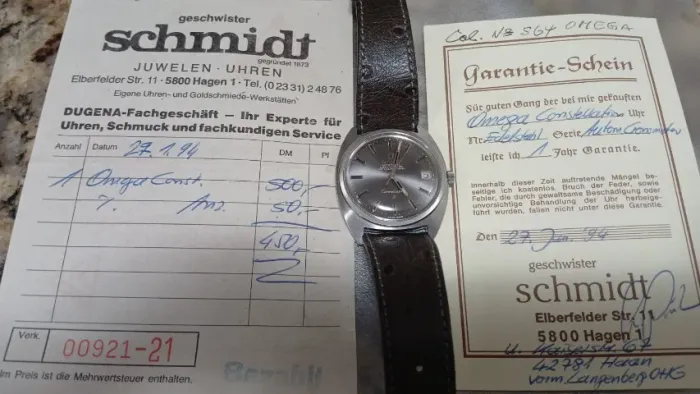 geschwister
schmidt
gegründet 1873
JUWELEN · UHREN
Elberfelder Str. 11 · 5800 Hagen 1 · Tel. (0 23 31) 2 48 76
Eigene Uhren- und Goldschmiede-Werkstätten
DUGENA-Fachgeschäft – Ihr Experte für
Uhren, Schmuck und fachkundigen Service
Anzahl Datum 27.1.94 DM Pf
1 Omega Const. 500,-
·/. Anz. 50,-
450,-
Verk. 00921-21
Im Preis ist die Mehrwertsteuer enthalten.
Bezahlt
OMEGA
Garantie-Schein
Für guten Gang der bei mir gekauften
Omega Constellation Uhr
Nr. Edelstahl Serie Autom. Chronometer
leiste ich 1 Jahr Garantie.
Innerhalb dieser Zeit auftretende Mängel be-
seitige ich kostenlos. Bruch der Feder, sowie
Fehler, die durch gewaltsame Beschädigung oder
unvorsichtige Behandlung der Uhr herbeige-
führt wurden, fallen nicht unter diese Garantie.
Den 27. Jan. 94
geschwister
schmidt
Elberfelder Str. 11
5800 Hagen 1
u. Kaiserstr. 67
42781 Haan
vorm. Langenberg OHG